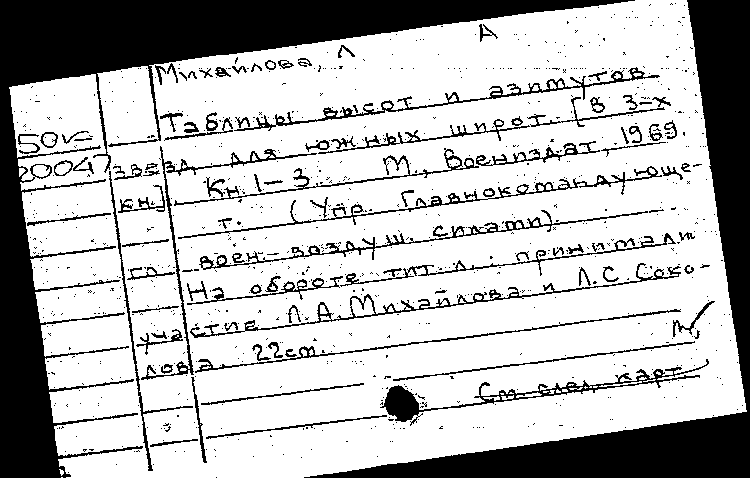 Михайлова, Л А
Таблицы высот и азимутов
50
20047 звезд для южных широт. [В 3-х
кн.]. Кн. 1-3. М., Воениздат, 1969.
т. (Упр. Главнокомандующе-
го воен.-воздуш. силами).
На обороте тит. л.: принимали
участие Л.А. Михайлова и Л.С. Соко-
лова. 22см.
См. след. карт.